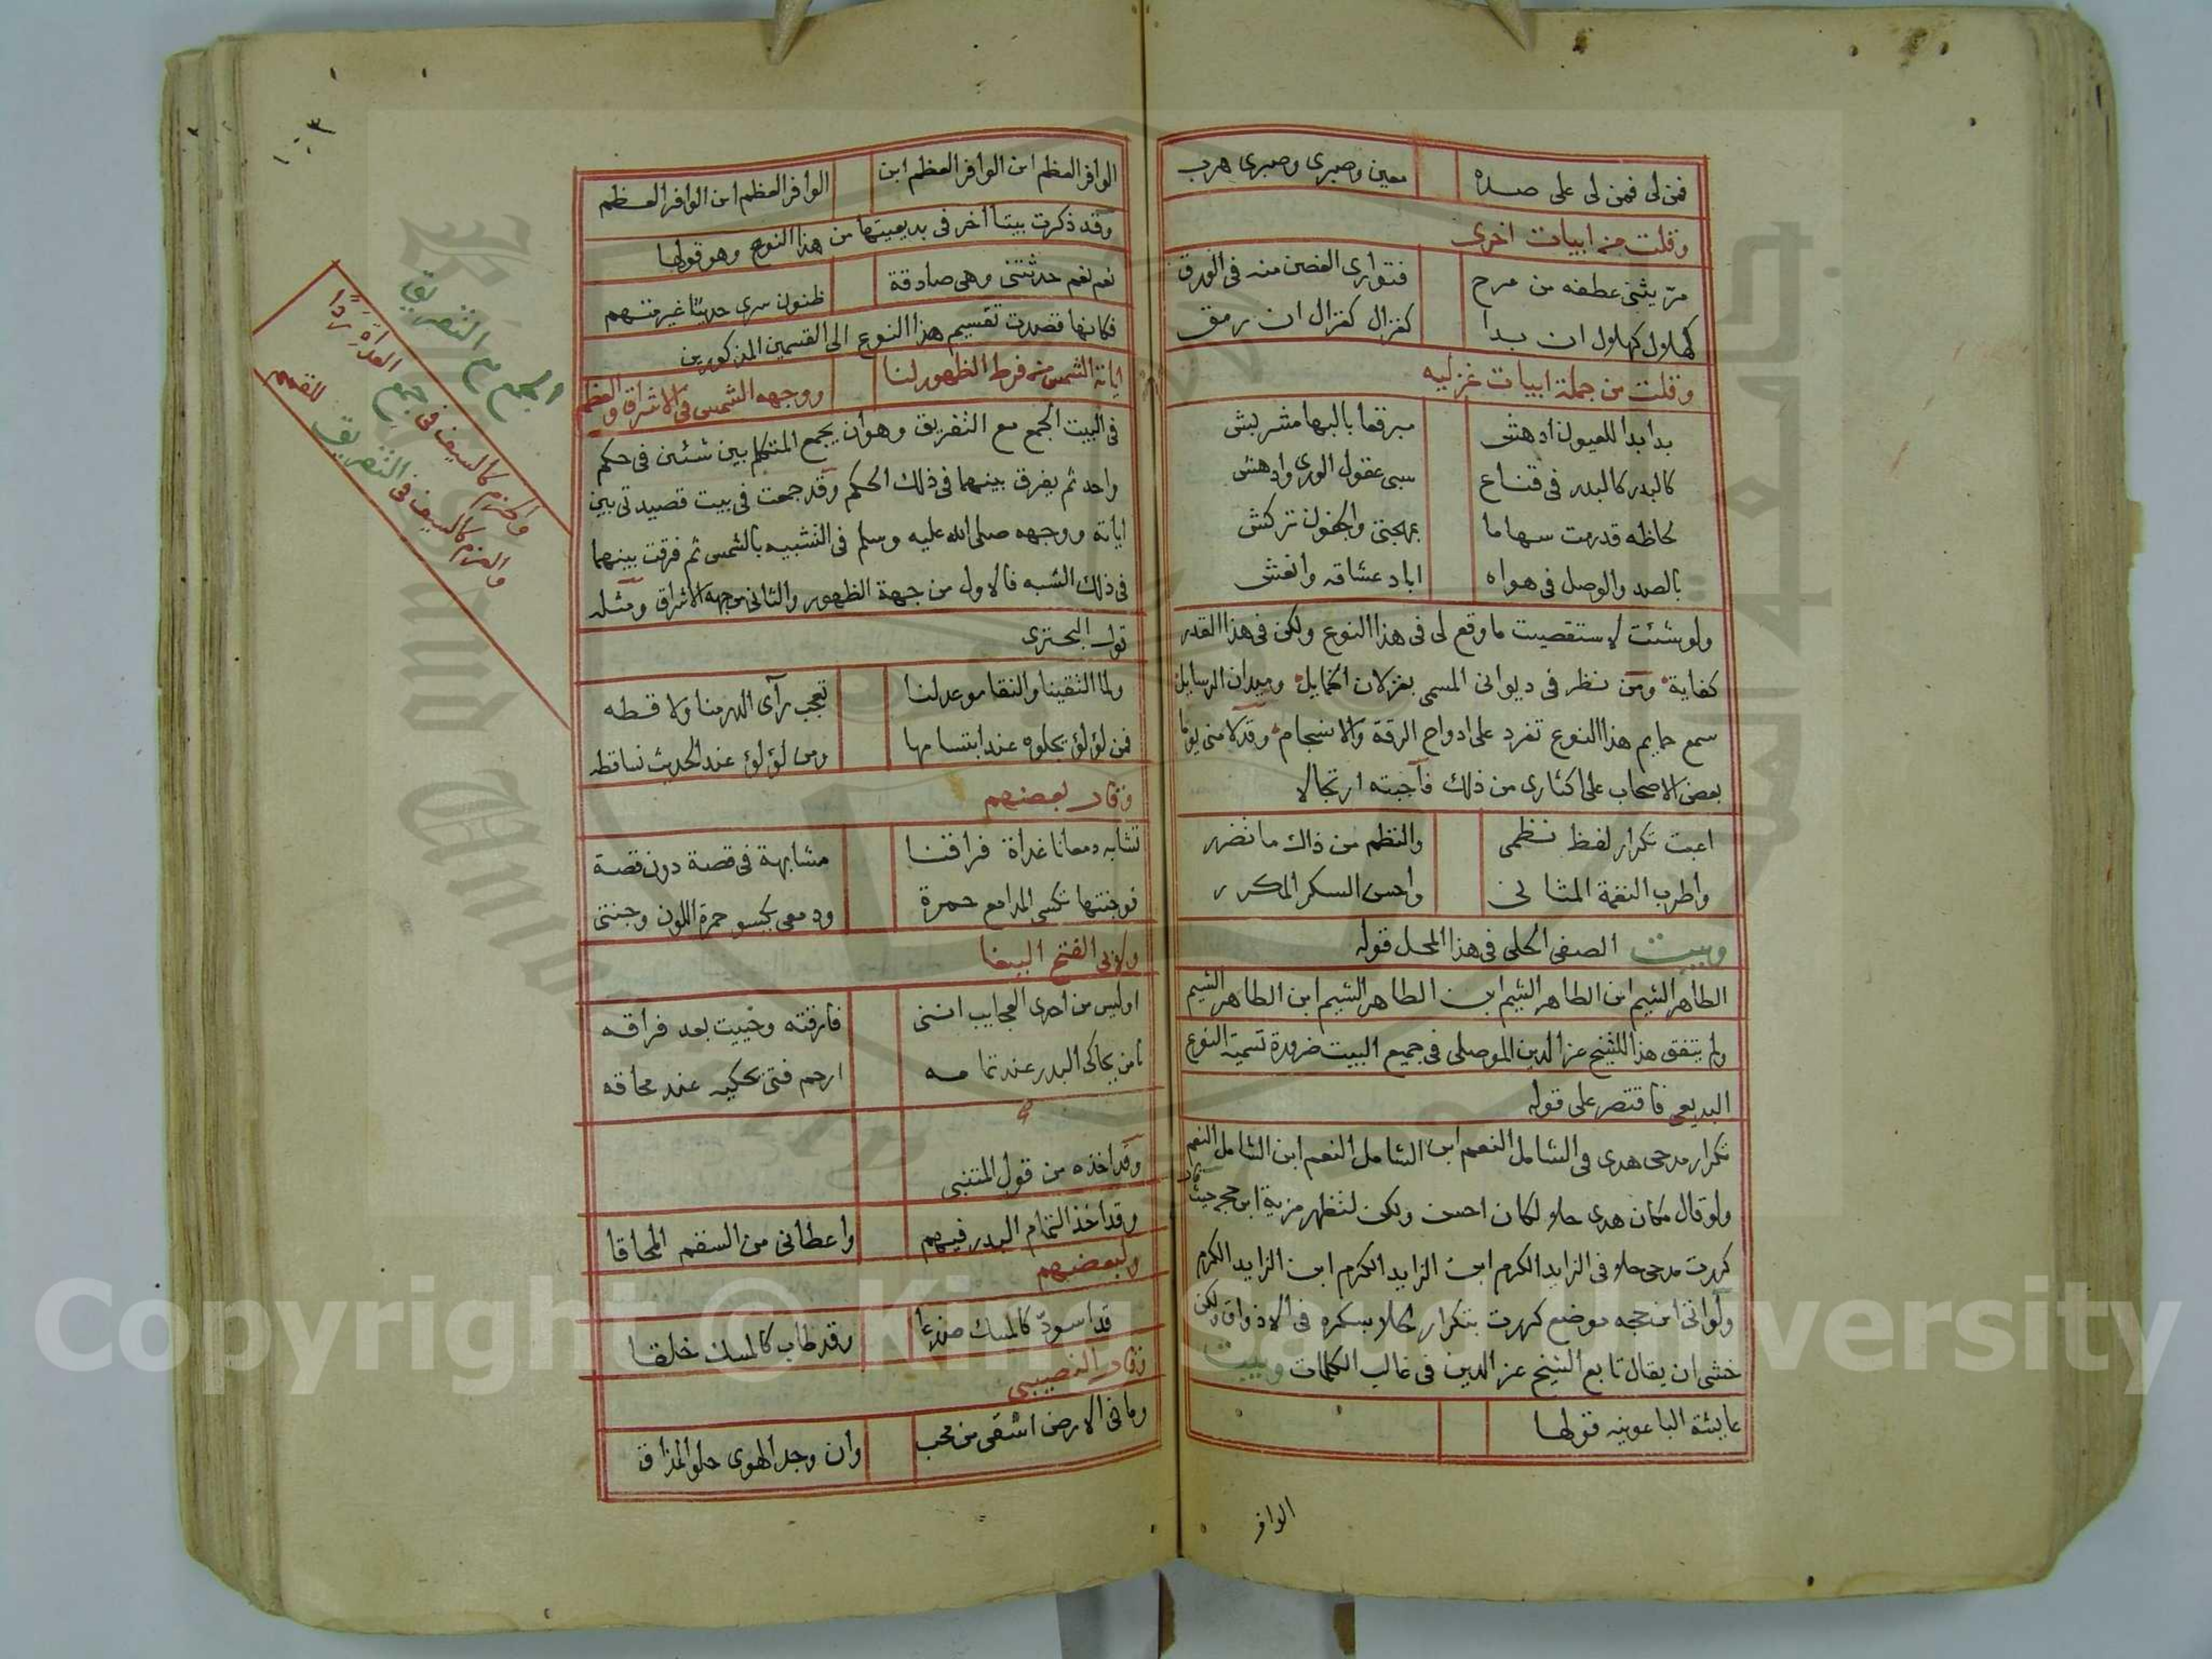 فمن لى فمن لى على صده معين وصبرى وصبرى هرب
وقلت من ابيات اخرى
مرّ يثنى عطفه من مرح فتوارى الغصن منه فى الورق
كهلال كهلال ان بدا كغزال كغزال ان رمق
وقلت من جملة ابيات غزليه
بدا بدا للعيون ادهش مبرقعا بالبها مشربش
كالبدر كالبدر فى قناع سبى عقول الورى وادهش
لحاظه قد رمت سهاما بمهجتى والجفون تركش
بالصد والوصل فى هواه اباد عشاقه وانعش
ولو شئت لاستقصيت ما وقع لى فى هذا النوع ولكن فى هذا القدر
كفاية ومن نظر فى ديوانى المسمى بغزلان الخمايل وميدان الرسايل
سمع حمايم هذا النوع تغرد على ادواح الرقة والانسجام وقد لامنى يوما
بعض الاصحاب على اكثارى من ذلك فاجبته ارتجالا
اعبت تكرار لفظ نظمى والنظم من ذاك ما تضرر
واطرب النغمة المثانى واحسن السكر المكرر
وبيت الصفى الحلى فى هذا المحل قوله
الطاهر الشيم ابن الطاهر الشيم ابن الطاهر الشيم ابن الطاهر الشيم
ولم يتفق هذا للشيخ عز الدين الموصلى فى جميع البيت ضرورة تسمية النوع
البديعى فاقتصر على قوله
تكرار مدحى هدى فى الشامل النعم ابن الشامل النعم ابن الشامل النعم
ولو قال مكان هدى حلا لكان احسن ولكن لتظهر مزية ابن حجه حيث قال
كررت مدحى حلا فى الزايد الكرم ابن الزايد الكرم ابن الزايد الكرم
ولو اتى ابن حجه موضع كررت بتكرار لحلا بسكره فى الاذواق ولكن
خشى ان يقال تابع الشيخ عز الدين فى غالب الكلمات وبيت
عايشة الباعونيه قولها
الوافر
١٠٣
الوافر العظم ابن الوافر العظم ابن الوافر العظم ابن الوافر العظم
وقد ذكرت بيتا اخر فى بديعيتها من هذا النوع وهو قولها
نعم نعم حدثتنى وهى صادقة ظنون سرى حديثا غير متهم
فكانها قصدت تقسيم هذا النوع الى القسمين المذكورين
اياته الشمس من فرط الظهور لنا ووجهه الشمس فى الاشراق والعظم
فى البيت الجمع مع التفريق وهو ان يجمع المتكلم بين شيئين فى حكم
واحد ثم يفرق بينهما فى ذلك الحكم وقد جمعت فى بيت قصيدتى بين
اياته ووجهه صلى الله عليه وسلم فى التشبيه بالشمس ثم فرقت بينهما
فى ذلك الشبه فالاول من جهة الظهور والثانى من جهة الاشراق ومثله
قول البحترى
ولما التقينا والنقا موعد لنا تعجب رآى الدر منا ولاقطه
فمن لؤلؤ تجلوه عند ابتسامها ومن لؤلؤ عند الحديث تساقطه
وقال بعضهم
تشابه دمعانا غداة فراقنا مشابهة فى قصة دون قصة
فوجنتها تكسى المدامع حمرة ودمعى يكسو حمرة اللون وجنتى
ولابى الفتح الببغا
اوليس من احدى العجايب اننى فارقته وحييت بعد فراقه
يا من يحاكى البدر عند تمامه ارحم فتى يحكيه عند محاقه
وقد اخذه من قول المتنبى
وقد اخذ التمام البدر فيهم واعطانى من السقم المحاقا
ولبعضهم
قد اسودّ كالمسك صدغا وقد طاب كالمسك خلقا
وقال النصيبى
وما فى الارض اشقى من محب وان وجد الهوى حلو المذاق
الجمع مع التفريق
والحزم كالسيف فى جمع العداة ردًا
والعزم كالسيف فى التفريق للقمم
Copyright © King Saud University